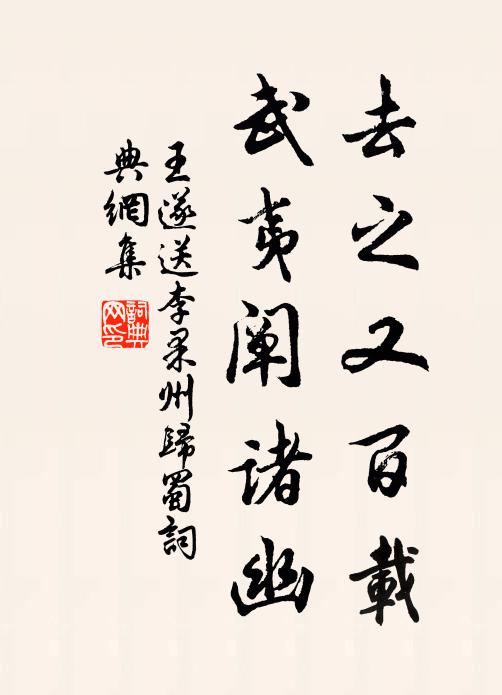 去之又百載
武夷阐諸幽
王遂送李果州歸蜀詞
典網集
詞典
网印